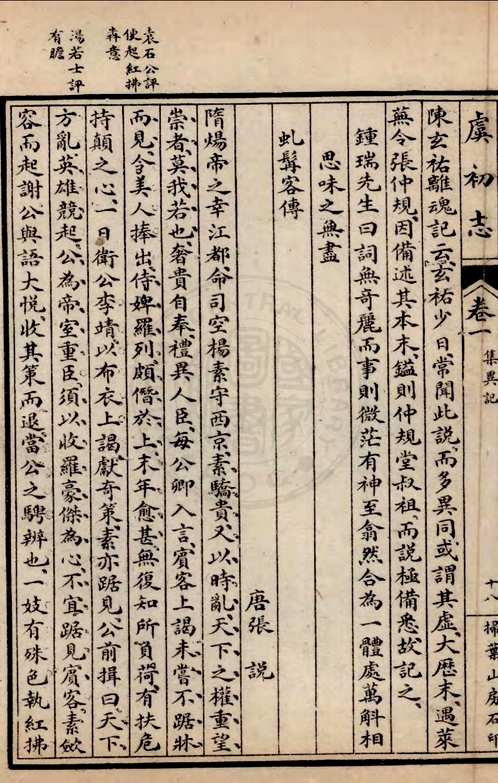 虞初志
卷一
集異記
十八
掃葉山房石印
陳玄祐離魂記云玄祐少日常聞此説而多異同或謂其虛大歷末遇萊
蕪令張仲規因備述其本末鎰則仲規堂叔祖而説極備悉故記之
鍾瑞先生曰詞無奇麗而事則微茫有神至翕然合為一體處萬斛相
思味之無盡
虬髯客傳
唐張説
隋煬帝之幸江都命司空楊素守西京素驕貴又以時亂天下之權重望
崇者莫我若也奢貴自奉禮異人臣每公卿入言賓客上謁未嘗不踞牀
而見令美人捧出侍婢羅列頗僭於上末年愈甚無復知所負荷有扶危
持顛之心一日衛公李靖以布衣上謁獻奇策素亦踞見公前揖曰天下
方亂英雄競起公為帝室重臣須以收羅豪傑為心不宜踞見賓客素斂
容而起謝公與語大悦收其策而退當公之騁辨也一妓有殊色執紅拂
袁石公評
便起紅拂
森意
湯若士評
有瞻